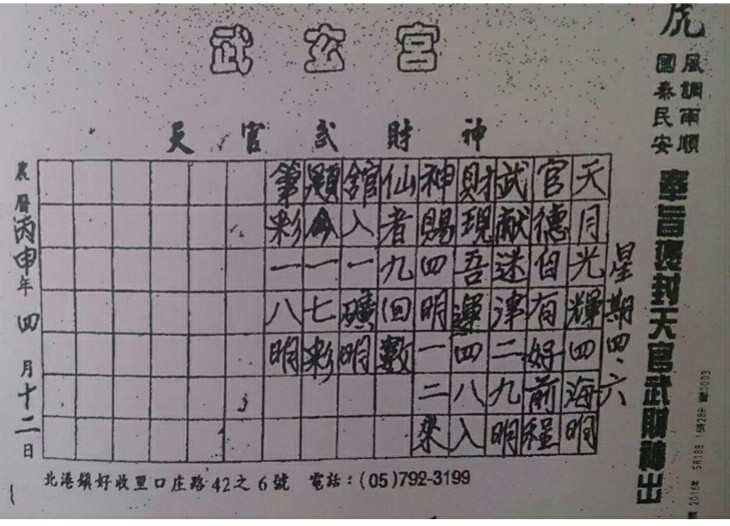 武玄宮
天官武財神
虎
風調雨順
國泰民安
奉旨褒封天官武財神出
星期四、六
天月光輝四海明
官德自有好前程
武獻迷津二九明
財現吾運四八入
神賜四明一二來
仙者九回數
館入一礦明
顯今一七彩
筆彩一八明
農曆丙申年四月十二日
北港鎮好收里口庄路42之6號 電話:(05)792-3199